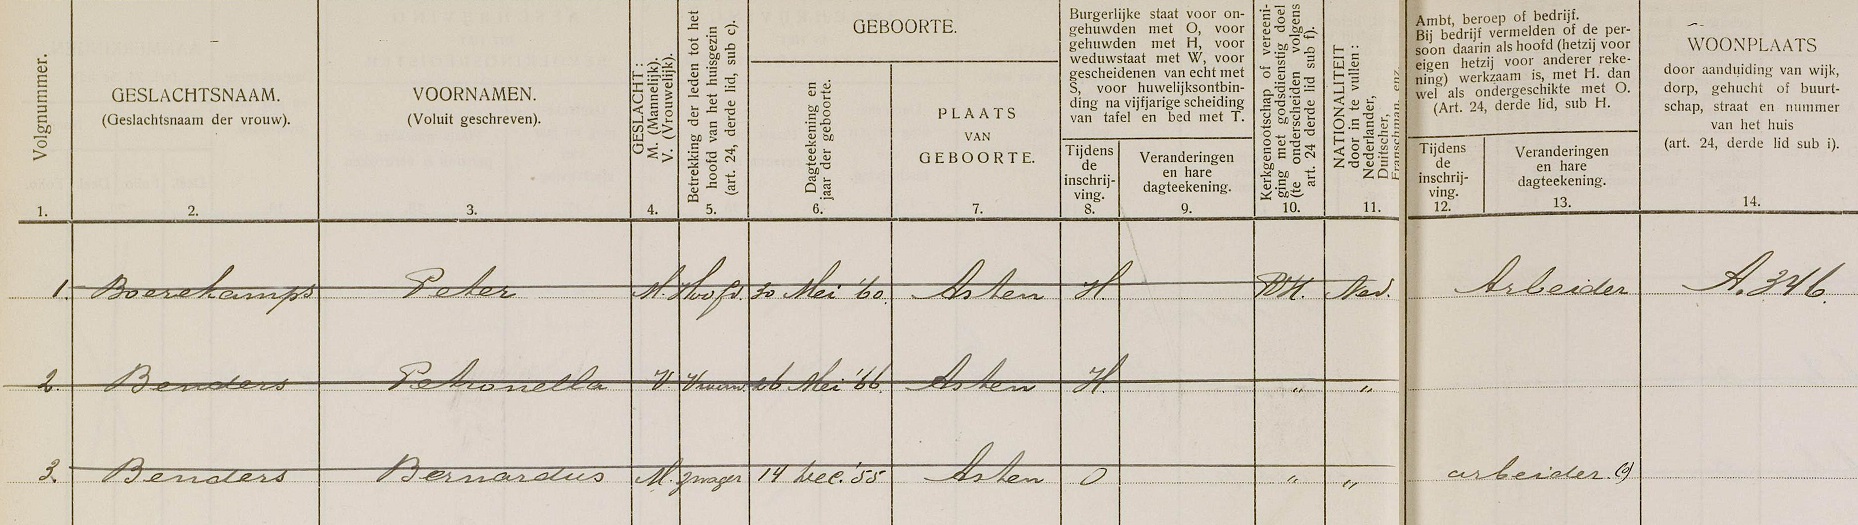 Volgnummer.
1.
GESLACHTSNAAM.
(Geslachtsnaam der vrouw).
2.
VOORNAMEN.
(Voluit geschreven).
3.
GESLACHT:
M. (Mannelijk).
V. (Vrouwelijk).
4.
Betrekking der leden tot het
hoofd van het huisgezin
(art. 24, derde lid, sub c).
5.
GEBOORTE.
Dagteekening en
jaar der geboorte.
6.
PLAATS
VAN
GEBOORTE.
7.
Burgerlijke staat voor on-
gehuwden met O, voor
gehuwden met H, voor
weduwstaat met W, voor
gescheidenen van echt met
S, voor huwelijksontbin-
ding na vijfjarige scheiding
van tafel en bed met T.
Tijdens
de
inschrij-
ving.
8.
Veranderingen
en hare
dagteekening.
9.
Kerkgenootschap of vereeni-
ging met godsdienstig doel
(te onderscheiden volgens
art. 24 derde lid sub f).
10.
NATIONALITEIT
door in te vullen:
Nederlander,
Duitscher,
Franschman, enz.
11.
Ambt, beroep of bedrijf.
Bij bedrijf vermelden of de per-
soon daarin als hoofd (hetzij voor
eigen hetzij voor anderer reke-
ning) werkzaam is, met H. dan
wel als ondergeschikte met O.
(Art. 24, derde lid, sub H.
Tijdens
de
inschrij-
ving.
12.
Veranderingen
en hare
dagteekening.
13.
WOONPLAATS
door aanduiding van wijk,
dorp, gehucht of buurt-
schap, straat en nummer
van het huis
(art. 24, derde lid sub i).
14.
1. Boerekamps Peter M. Hoofd. 30 Mei '60. Asten H. RK. Ned. Arbeider A. 346.
2. Benders Petronella V Vrouw. 26 Mei '66. Asten H. " "
3. Benders Bernardus M. zwager 14 Dec. '55 Asten O " " arbeider.